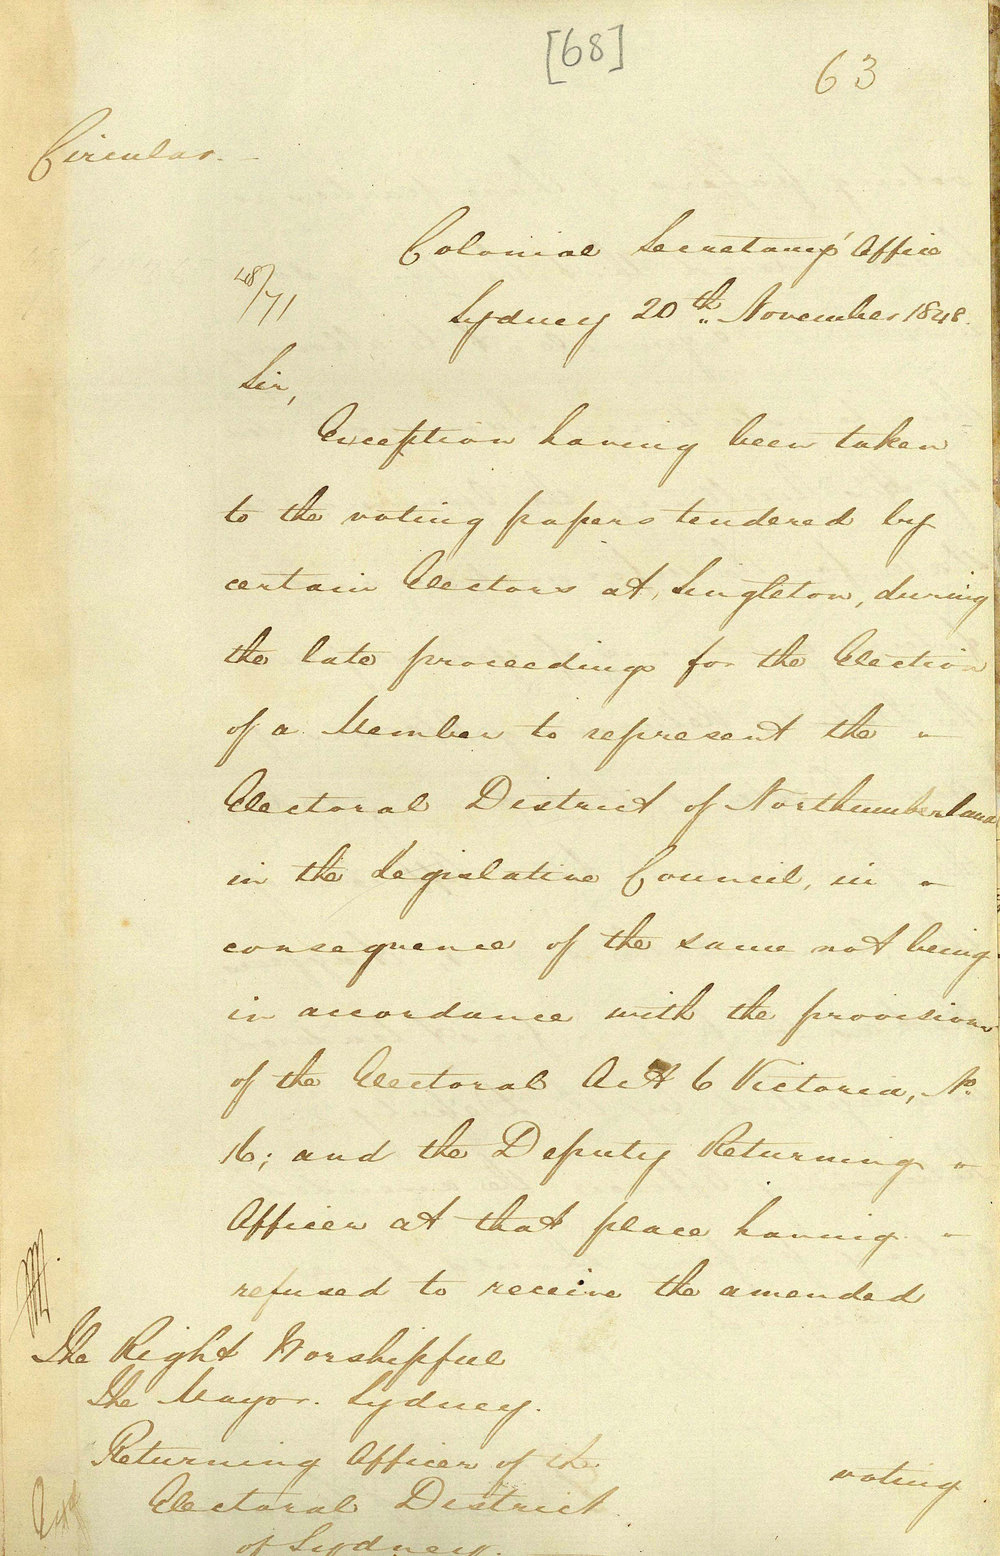 [68]
63
Circular.
Colonial Secretary's Office
48/71
Sydney 20th November 1848.
Sir,
Exception having been taken
to the voting papers tendered by
certain Electors at Singleton, during
the late proceedings for the Election
of a Member to represent the
Electoral District of Northumberland
in the Legislative Council, in
consequence of the same not being
in accordance with the provisions
of the Electoral Act 6 Victoria, No.
16; and the Deputy Returning
Officer at that place having
refused to receive the amended
The Right Worshipful
The Mayor. Sydney.
Returning Officer of the
voting
Electoral District
of Sydney.